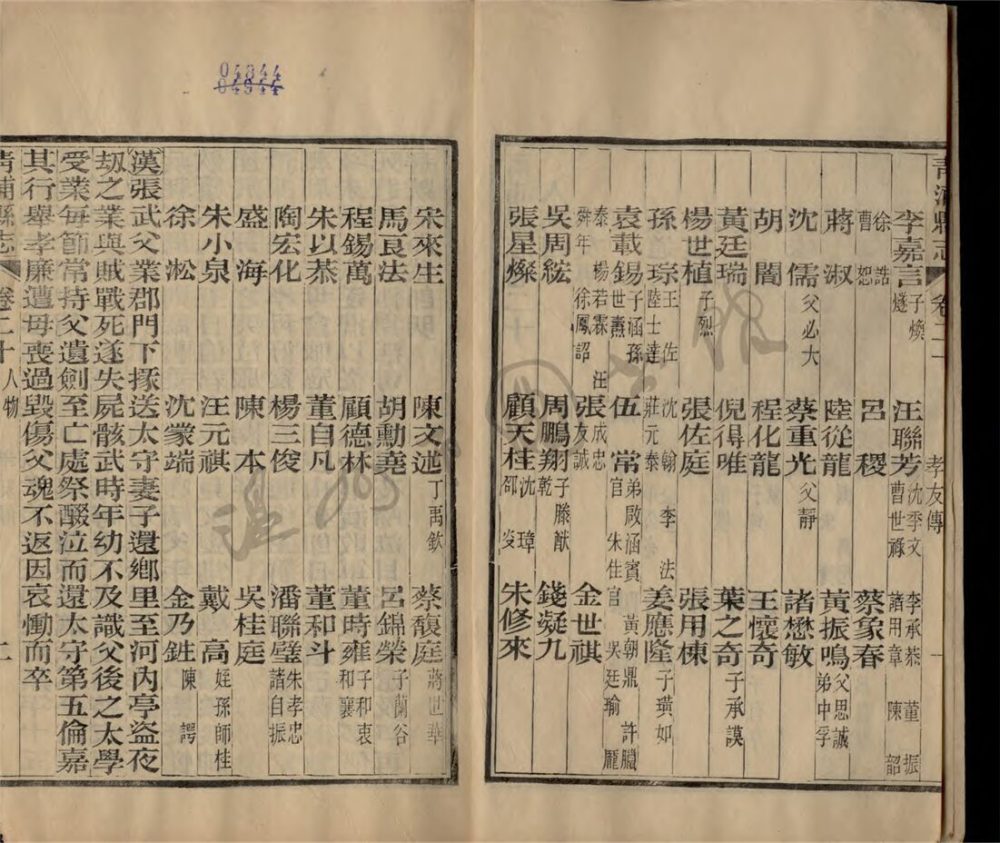 青浦縣志 卷二十 孝友傳 一
李嘉言 子煥 燧 汪聯芳 沈季文 曹世祿 李承恭 諸用章 董振 陳韶
徐誥 曹恕 呂稷 蔡象春
蔣淑 陸從龍 黃振鳴 父思誠 弟中孚
沈儒 父必大 蔡重光 父靜 諸懋敏
胡闇 程化龍 王懷奇
黃廷瑞 倪得唯 葉之奇 子承謨
楊世植 子烈 張佐庭 張用棟
孫琮 王佐 陸士達 沈翰 莊元泰 李法 姜應隆 子璜如
袁載錫 子涵孫 世燾 伍常 弟啟涵賓 官 朱佳官 黃朝鼎 吳廷瑜 許臘 龐
泰 舜年 楊若霖 徐鳳詔 汪成忠 張友誠 張 金世祺
吳周紘 周鵬翔 子滕猷 乾 錢凝九
張星燦 顧天桂 沈璋 邵 朱修來
宋來生 陳文述 丁禹欽 蔡馥庭 蔣世華
馬良法 胡勳堯 呂錦榮 子蘭谷
程錫萬 顧德林 董時雍 子和衷 和襄
朱以恭 董自凡 董和斗
陶宏化 楊三俊 潘聯璧 朱孝忠 諸自振
盛海 陳本 吳桂庭
朱小泉 汪元祺 戴高 姪孫師桂
徐淞 沈蒙端 金乃甡 陳諤
漢張武父業郡門下掾送太守妻子還鄉里至河內亭盜夜
刼之業與賊戰死遂失屍骸武時年幼不及識父後之太學
受業每節常持父遺劍至亡處祭醊泣而還太守第五倫嘉
其行舉孝廉遭母喪過毀傷父魂不返因哀慟而卒
青浦縣志 卷二十 人物 二
04844